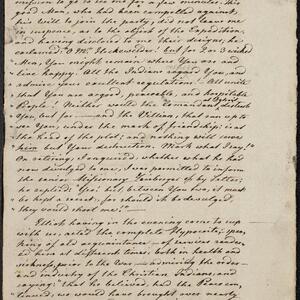 mission to go to see me for a few minutes. This
good Man, who had been compelled against
his will to join the party, did not leave me
in suspense, as to the object of the Expedition,
and having disclosed to me their designs, he
exclaimed O Mr. Heckewelder! but for 2 or 3 wicked
Men, You might remain where You are and
live happy! All the Indians regard You, and
admire your excellent regulations. All unite
that You are a good, peaceable, and hospitable
People! Neither would the Commandant disturb
You, but for and the Villian, that can up to
see You, under the mask of friendship: is at
the head of the plot; and nothing will save
him but Your destruction. Mark what I say!
On retiring, I enquired, whether what he had
now divulged to me; I was permitted to inform
the senior Missionary Zeisberger of by Letter;
he replied: Yes! but, between You two, it must
be kept a secret; for should it be divulged,
they would shoot me!
Elliot having in the evening came to up
with us, acted the complete Hypocrite, spea-
king of old acquaintance, of services render-
ed him at different times, both in health and
sickness prior to the War, admiring the order
and industry of the Christian Indians, and
saying: that he believed, had the Peace con-
tinued, we would have brought over nearly